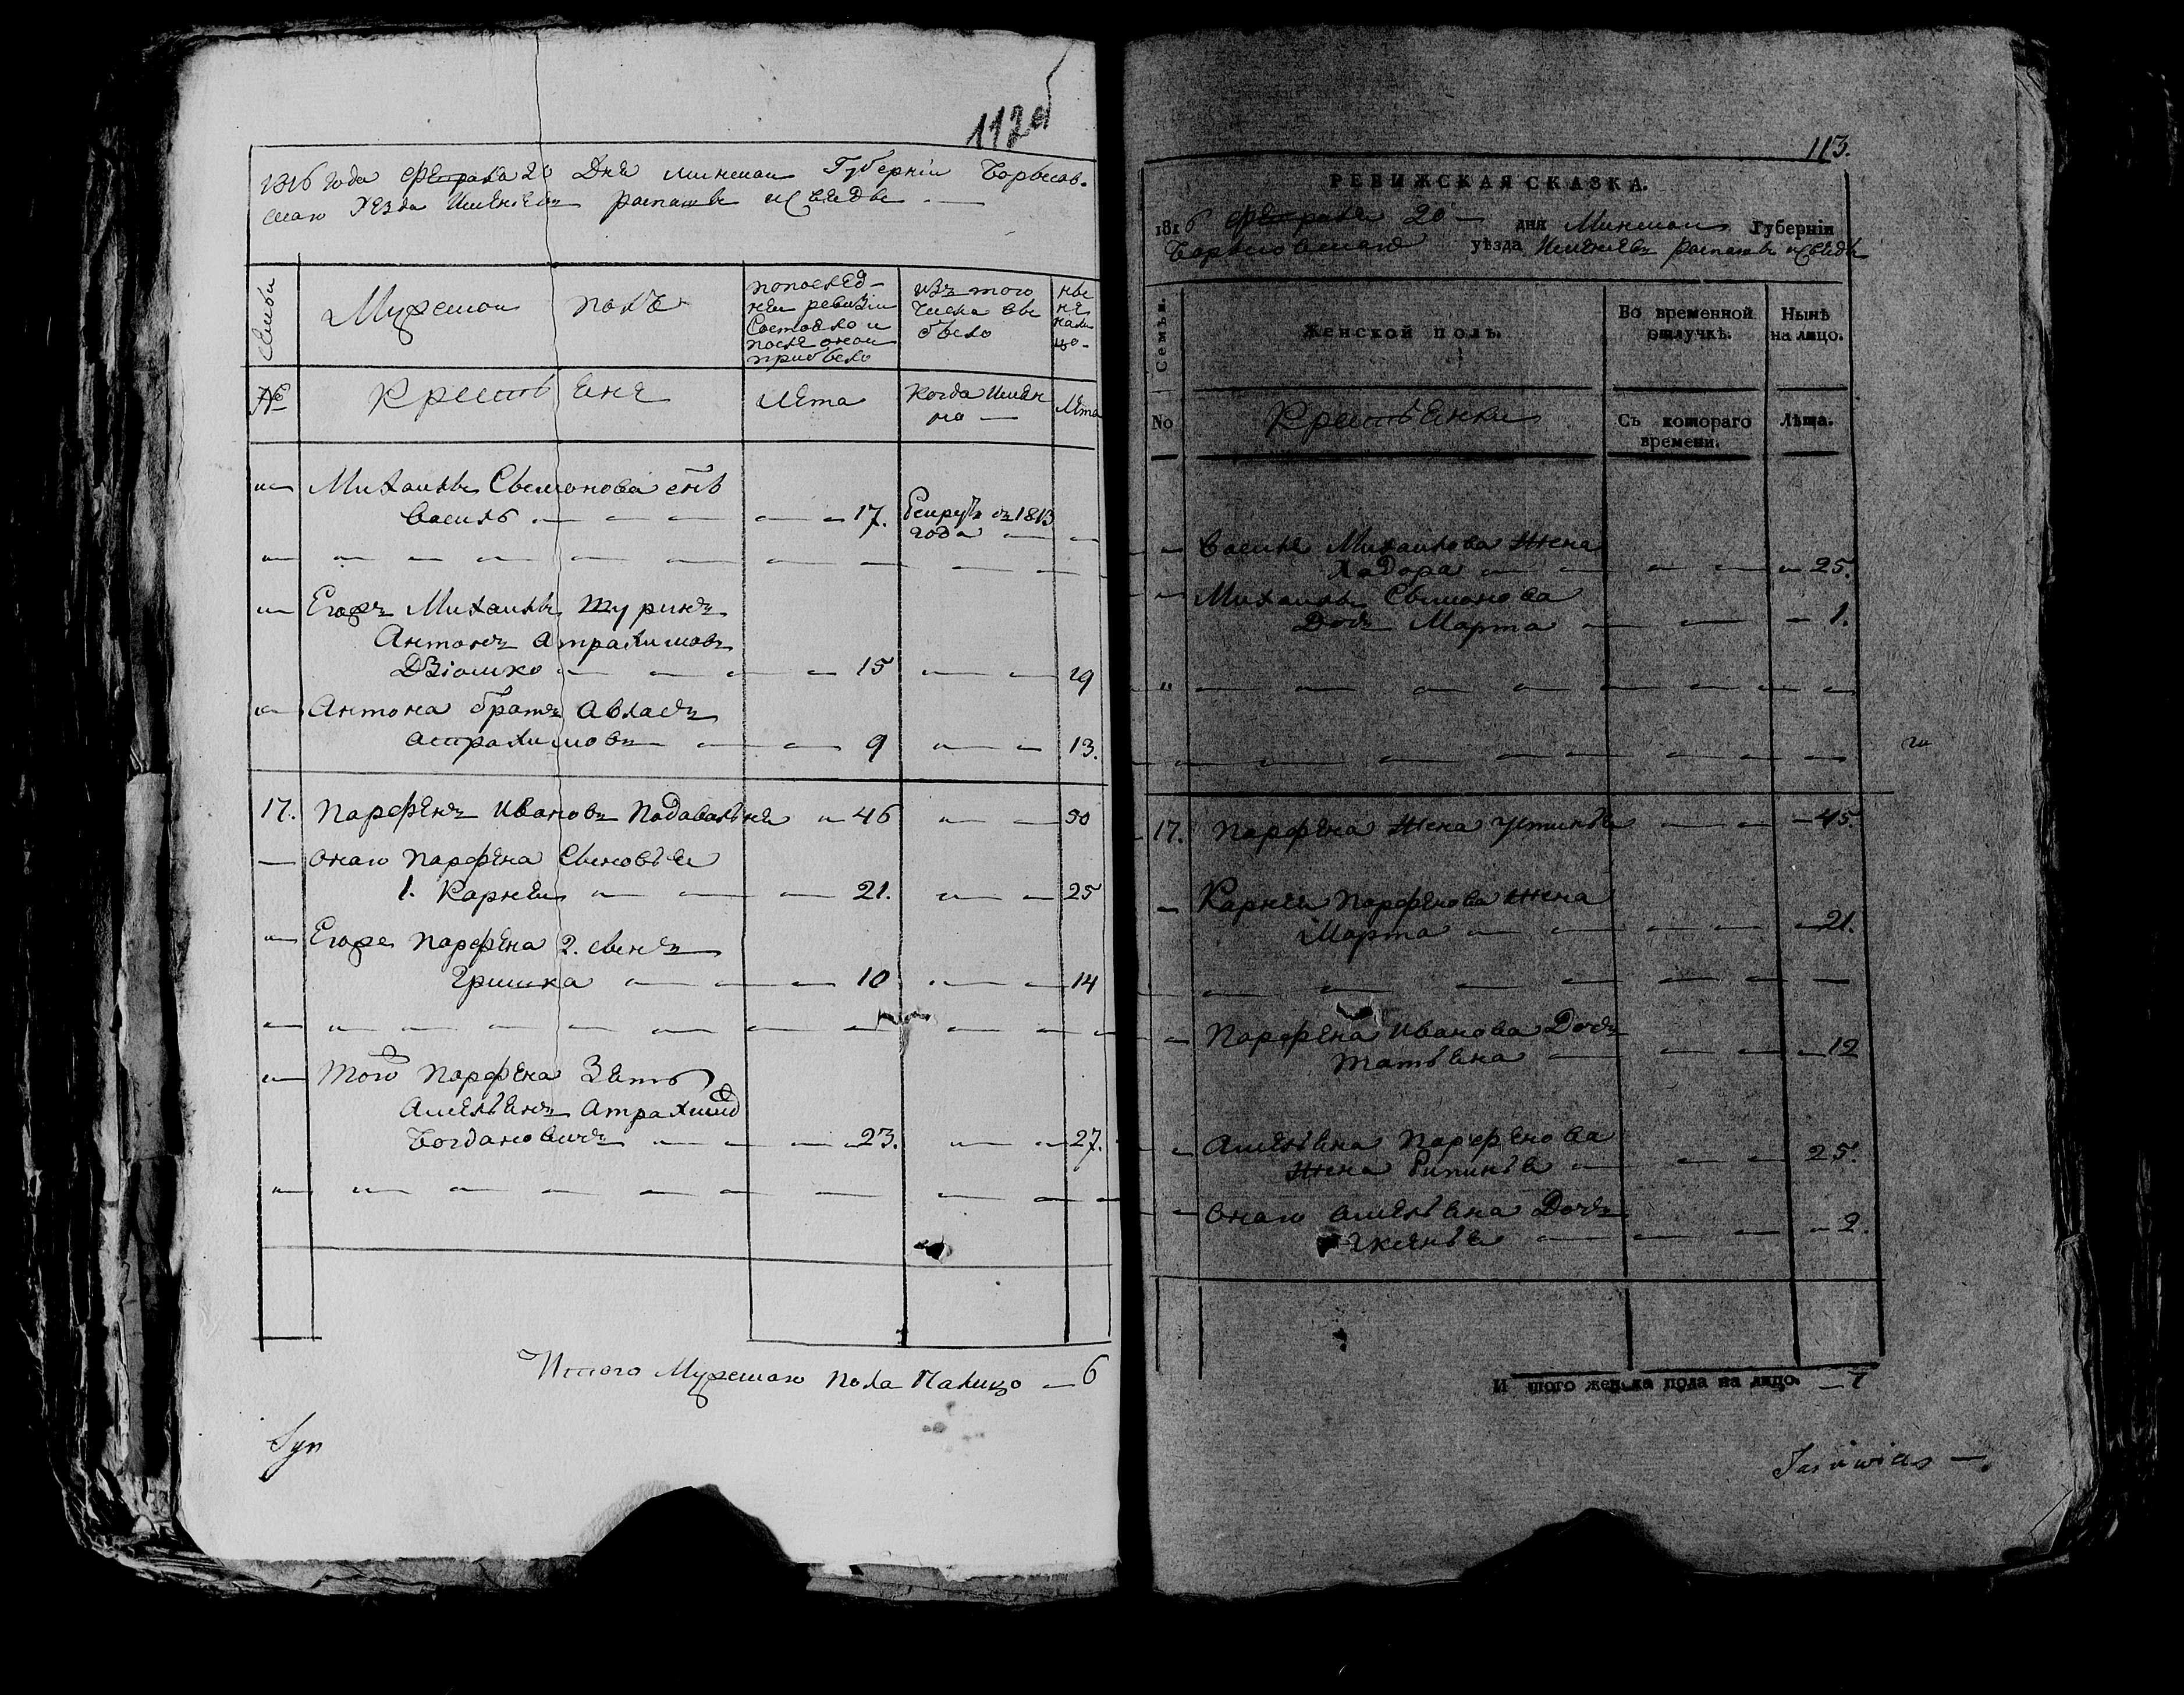 112об
1816 года Февраля 20 Дня минскои Губерніи Борысов-
скаго Уезда Имениевъ
Семьи
Мужескои полъ
попослед-
неи ревизіи
Состояло и
после онои
прибыло
изъ того
Числа вы
было
ны
не
нали
цо-
№
Крестьяне
Лета
Когда Имян
но —
Лета
Михаилы Сымонова снъ
Василь 17. рекрутъ въ 1813
года
Егожъ Михаилы
Антонъ Атрахимовъ
Дзіомко 15 19
Антона братъ Авласъ
Астрахимовъ 9 13.
17. Парфенъ Ивановъ Падавальня 46 50
онаго Парфена Сыновья
1. Карней 21. 25
Егоже Парфена 2. сынъ
Гришка 10 14
того Парфена Зять
Амельянъ Атрахимо
Богдановичъ 23. 27.
Итого Мужескаго пола Налицо — 6
Syn
113.
РЕВИЖСКАЯ СКАЗКА.
1816 Февраля 20 — дня Минскои Губерніи
Борысовскаго уѣзда Имениевъ
Семьи.
Женской полъ.
Во временной
отлучкѣ.
Нынѣ
на лицо.
No
Крестьянки
Съ котораго
времени.
Лѣта.
Василя Михаилова жена
Хадора 25.
Михаилы Сымонова
Дочь Марта 1.
17. Парфена жена Устинья 45.
Карнея Парфенова жена
Марта 21.
Парфена Иванова Дочь
татьяна 12
Амельяна Парфенова
жена 25.
онаго амельяна Дочь
2.
И того женска пола на лицо. — 7